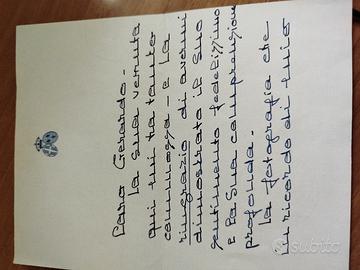 Caro Gerardo -
La sua venuta
qui mi ha tanto
commossa - e La
ringrazio di avermi
dimostrato il Suo
sentimento fedelissimo
e la Sua comprensione
profonda.
La fotografia che
in ricordo di mio
subito